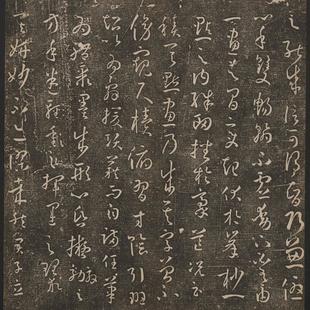 之能成信可謂智巧兼優
心手雙暢翰不虛動下必有由
一畫之間變起伏於峯杪一
點之內殊衄挫於豪芒況云
積其點畫乃成其字曾不
傍窺尺櫝俯習寸陰引班
超以為辭援項籍而自滿任筆
為體聚墨成形心昏擬效之
方手迷揮運之理求
其妍妙不亦謬哉然君子立